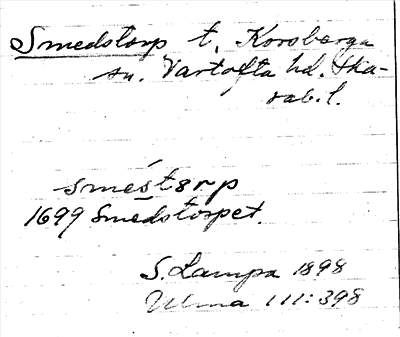 Smedstorp t. Korsberga
sn. Vartofta hd. Ska-
rab. l.
smés̱tǝrp
1699 Smedstorpet.
S. Lampa 1898
Ulma 111:398